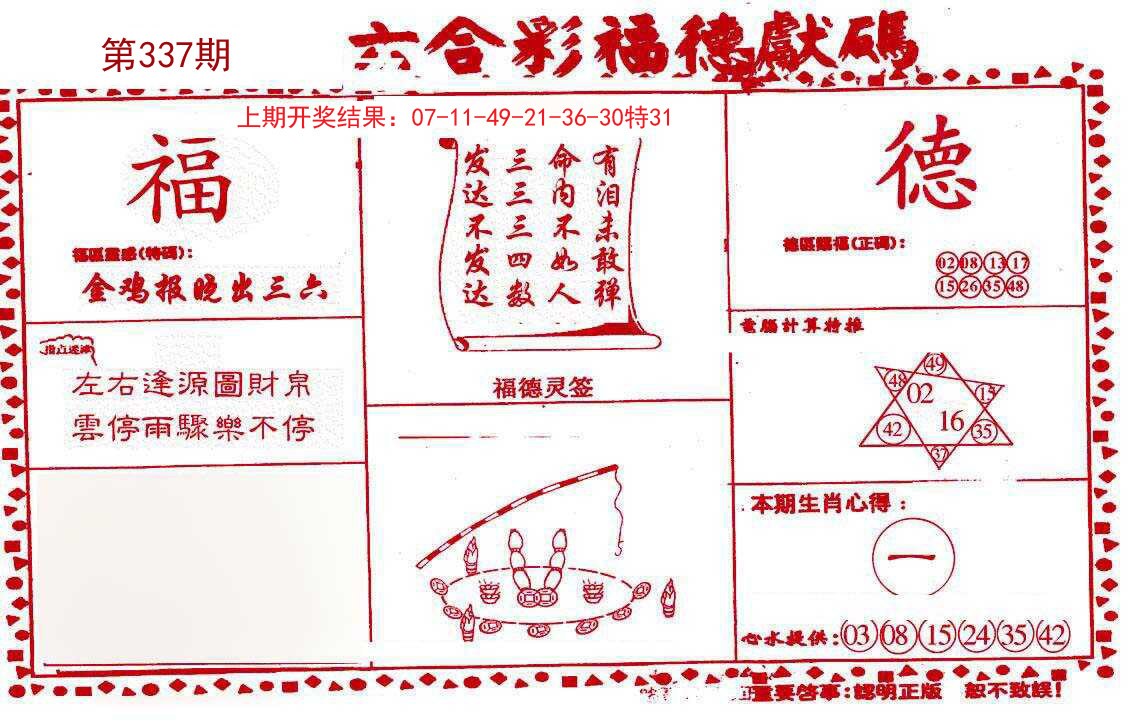 第337期
六合彩福德獻碼
上期开奖结果：07-11-49-21-36-30特31
福
福區靈感(特碼)：
金鸡报晓出三六
左右逢源圖財帛
雲停雨驟樂不停
有泪未敢弹
命内不如人
三三三四数
发达不发达
福德灵签
德
德區賜福(正碼)：
02 08 13 17
15 26 35 48
電腦計算特推
49
48 02 15
42 16 35
37
本期生肖心得：
一
心水提供：03 08 15 24 35 42
重要啓事：認明正版 恕不致誤！